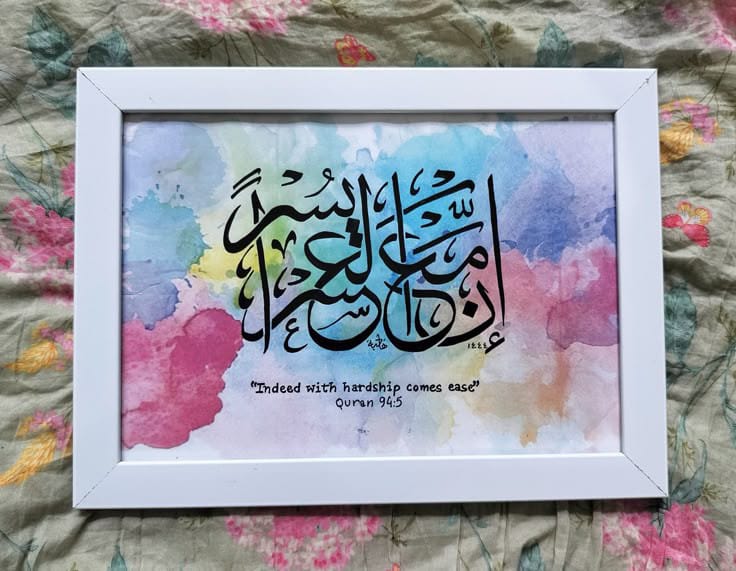 إِنَّ مَعَ العُسرِ يُسراً
١٤٤٤
“Indeed with hardship comes ease”
Quran 94:5